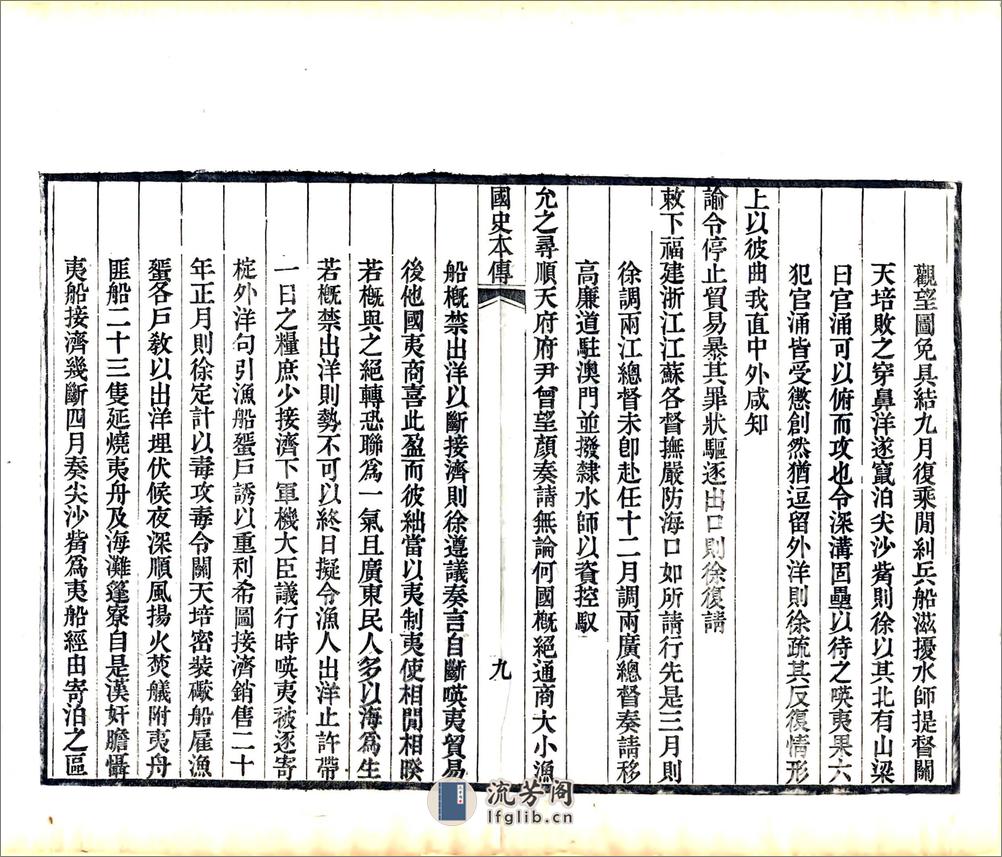 觀望圖免具結九月復乘閒糾兵船滋擾水師提督關
天培敗之穿鼻洋遂竄泊尖沙觜則徐以其北有山梁
曰官涌可以俯而攻也令深溝固壘以待之㗲夷果六
犯官涌皆受懲創然猶逗留外洋則徐疏其反復情形
上以彼曲我直中外咸知
諭令停止貿易暴其罪狀驅逐出口則徐復請
敕下福建浙江江蘇各督撫嚴防海口如所請行先是三月則
徐調兩江總督未卽赴任十二月調兩廣總督奏請移
高廉道駐澳門並撥隸水師以資控馭
允之尋順天府府尹曾望顏奏請無論何國槪絕通商大小漁
國史本傳
九
船槪禁出洋以斷接濟則徐遵議奏言自斷㗲夷貿易
後他國夷商喜此盈而彼絀當以夷制夷使相閒相暌
若槪與之絕轉恐聯爲一氣且廣東民人多以海爲生
若槪禁出洋則勢不可以終日擬令漁人出洋止許帶
一日之糧庶少接濟下軍機大臣議行時㗲夷被逐寄
椗外洋句引漁船蜑戶誘以重利希圖接濟銷售二十
年正月則徐定計以毒攻毒令關天培密裝礮船雇漁
蜑各戶敎以出洋埋伏候夜深順風揚火焚艤附夷舟
匪船二十三隻延燒夷舟及海灘篷寮自是漢奸膽懾
夷船接濟幾斷四月奏尖沙觜爲夷船經由寄泊之區
流芳阁
lfglib.cn